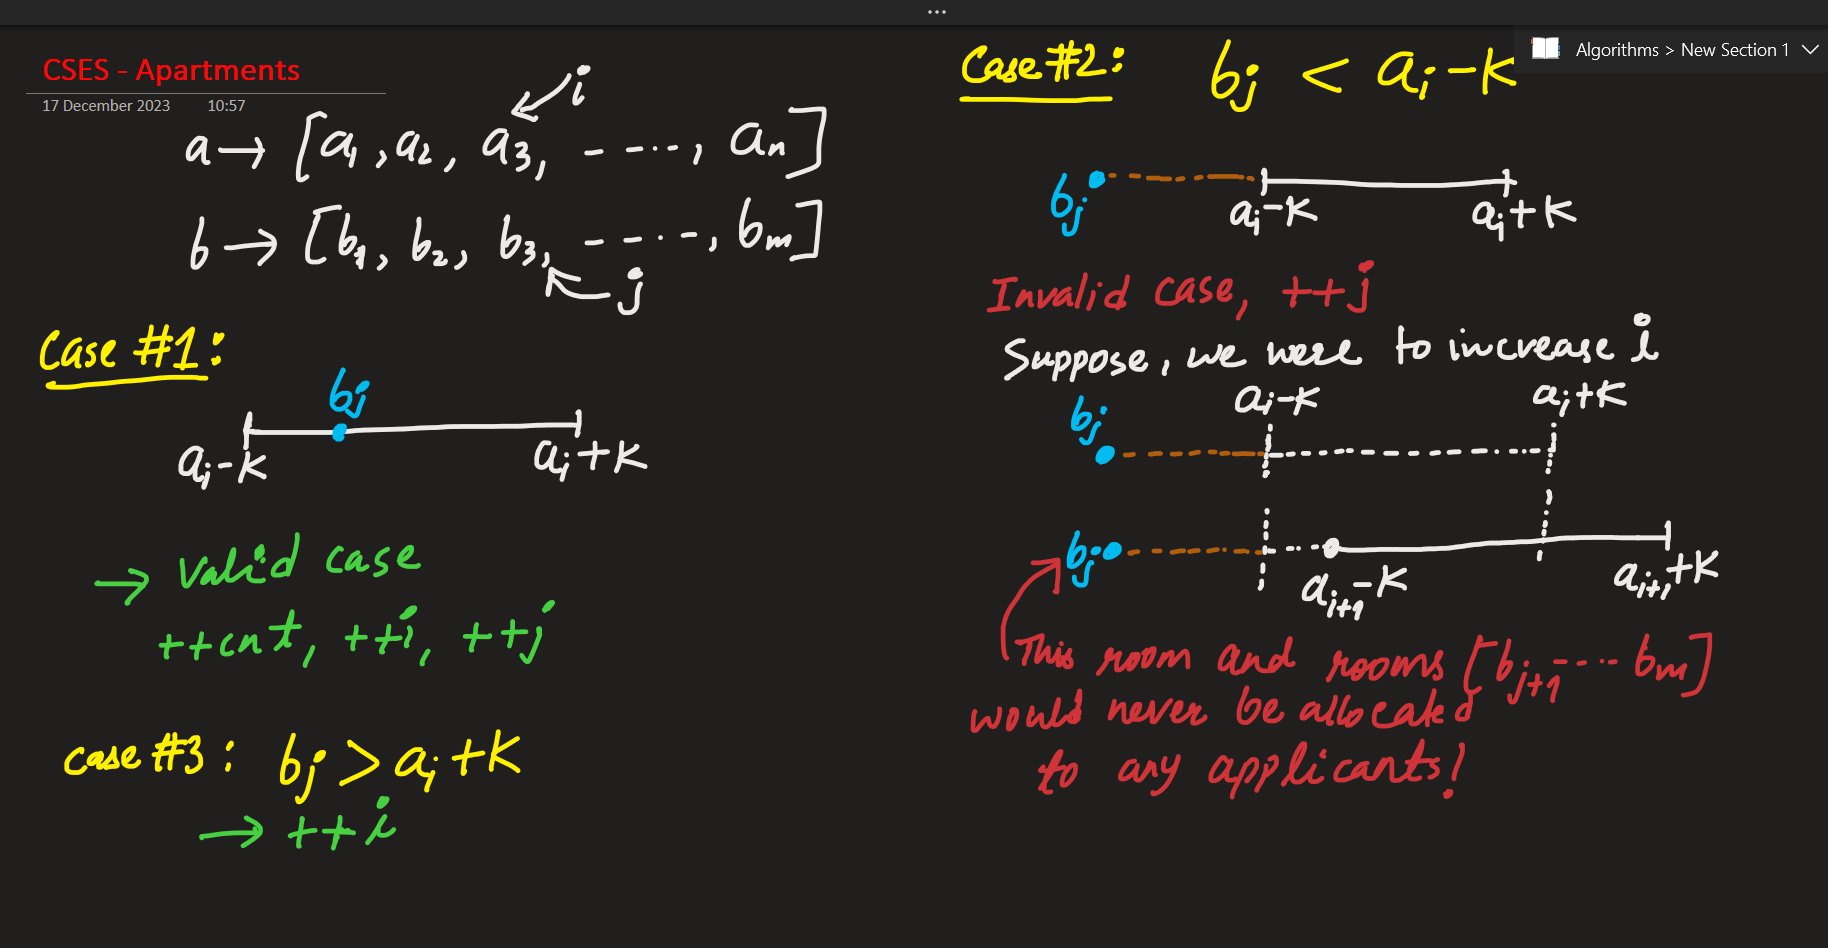 Algorithms > New Section 1
CSES - Apartments
17 December 2023 10:57
i
a → [a₁, a₂, a₃, - - - - - -, aₙ]
b → [b₁, b₂, b₃, - - - - - -, bₘ]
j
Case #1:
bⱼ
aᵢ-K aᵢ+K
→ Valid case
++cnt, ++i, ++j
case #3: bⱼ > aᵢ+K
→ ++i
Case #2: bⱼ < aᵢ-K
bⱼ aᵢ-K aᵢ+K
Invalid case, ++j
Suppose, we were to increase i
bⱼ aᵢ-K aᵢ+K
bⱼ aᵢ₊₁-K aᵢ₊₁+K
This room and rooms [bⱼ₊₁ - - - - bₘ]
would never be allocated
to any applicants!